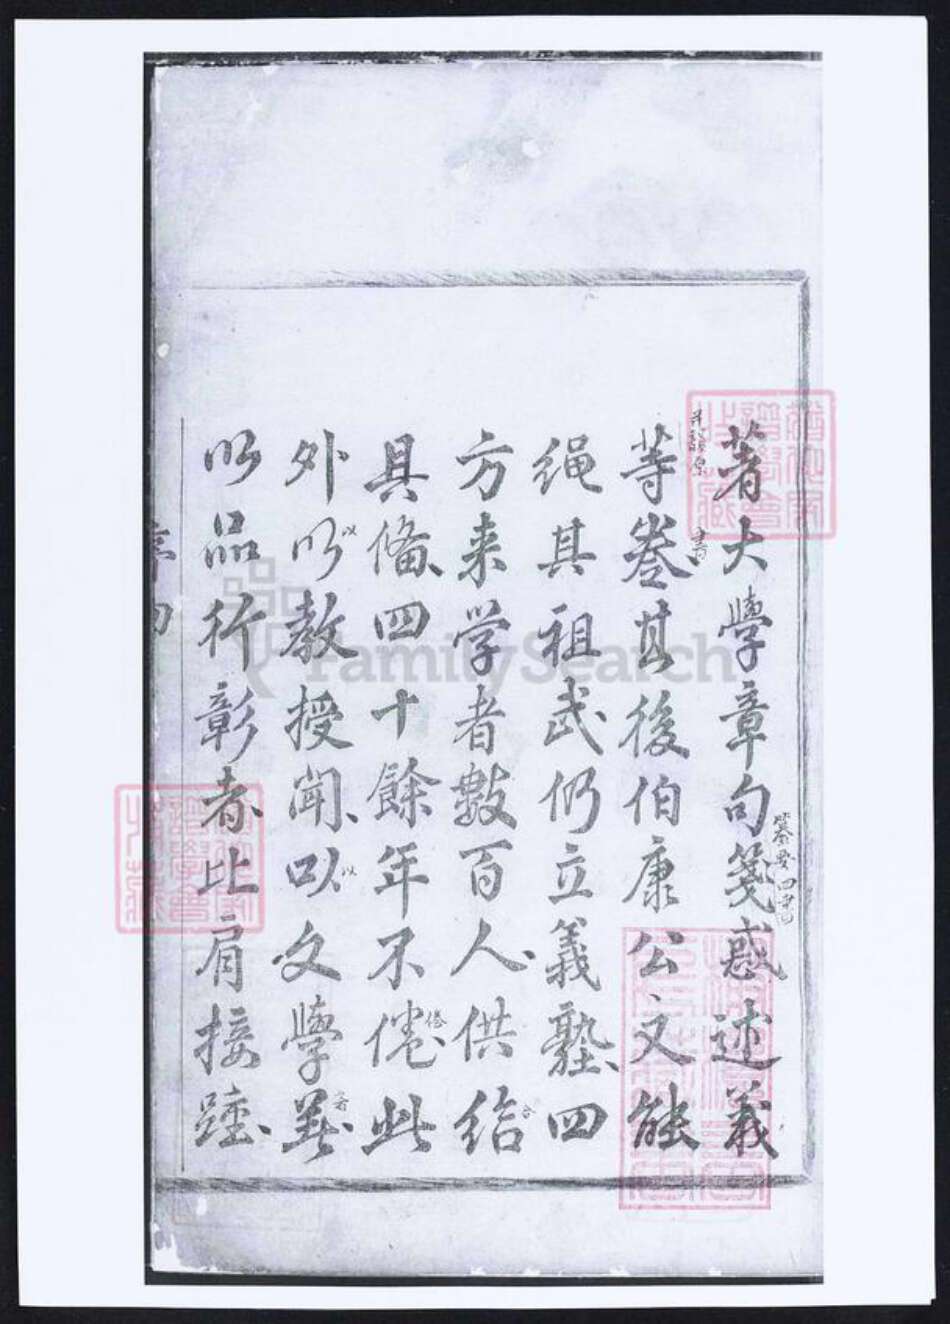 著大學章句箋惑述義
等卷其後伯康公又能
绳其祖武仍立義塾四
方来学者數百人供给
具俻四十餘年不倦此
外以教授闻以文學著
以品行彰者比肩接踵
書
以
以
倦
著
FamilySearch